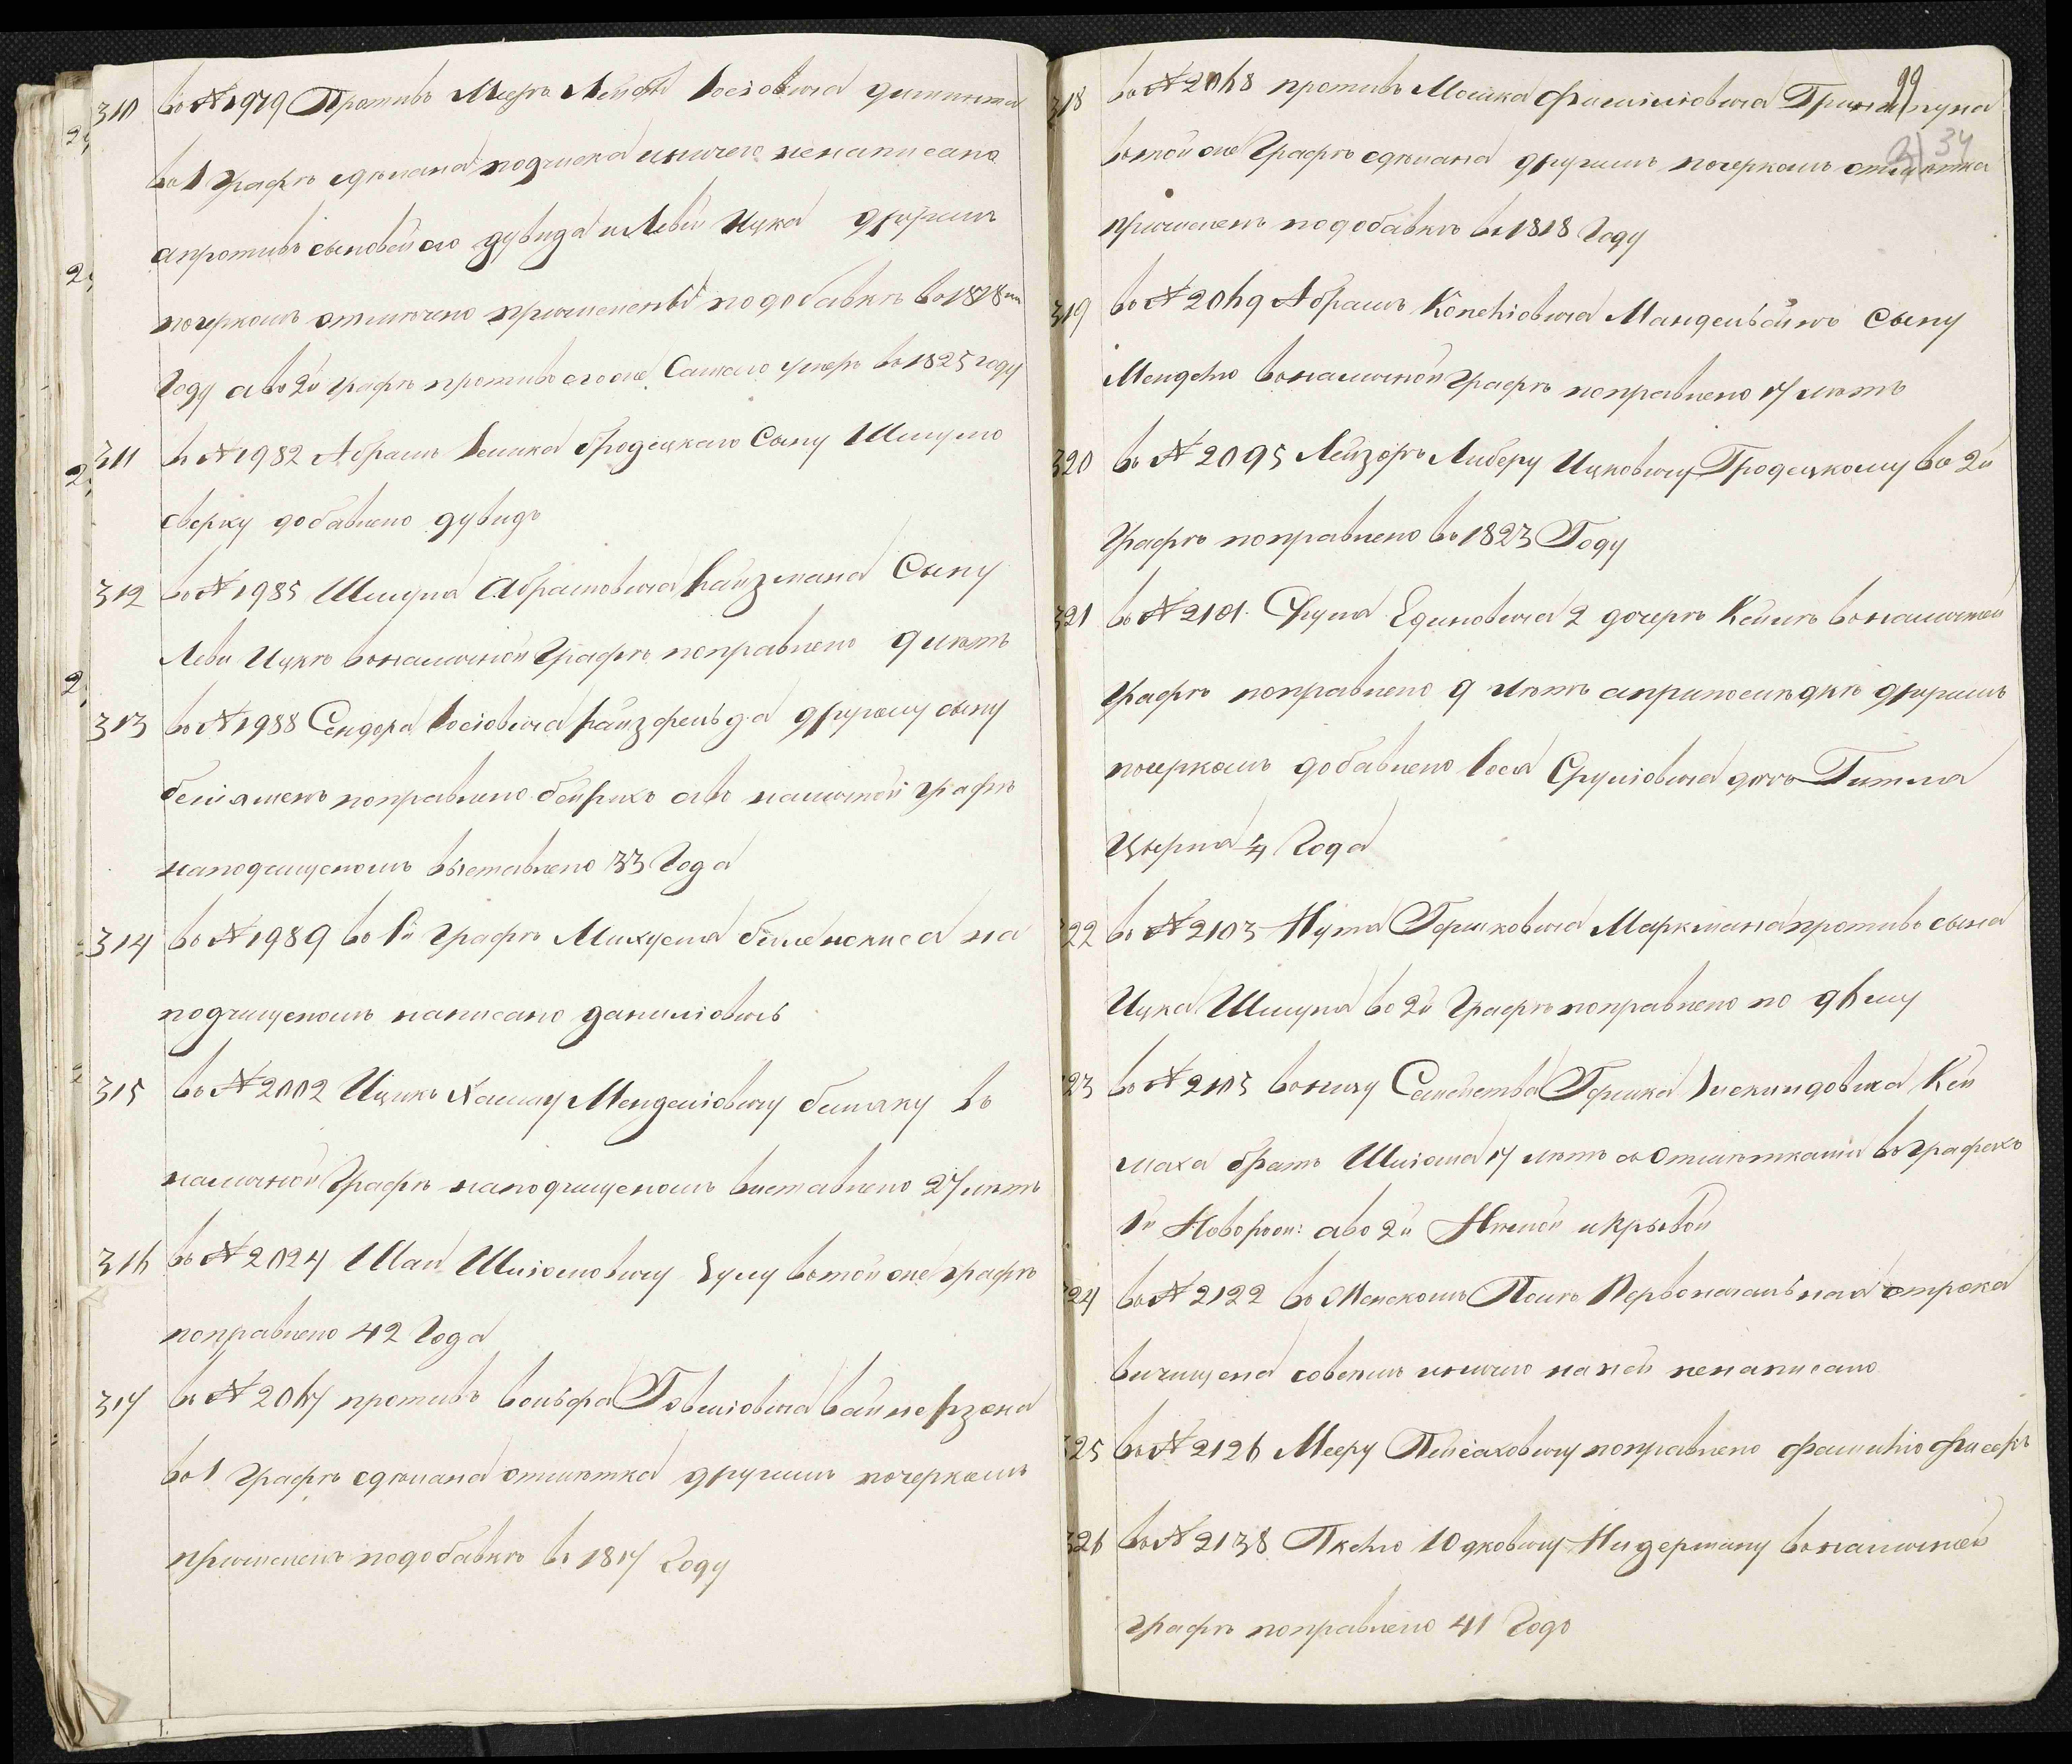 310 въ № 1979 Противъ Мееръ Лейбы Іосіовича
въ 1 графѣ сдѣлана подчиска и ничего ненаписано
а противъ сыновей его Дувида и Леви Ицка другимъ
почеркомъ отмечено причисленъ по добавкѣ въ 1818мъ
Году а во 2й графѣ противъ его же Самаго умеръ въ 1825 году
311 въ № 1982 Абрамъ Іосика Бродецкаго Сыну Шмулю
сверху добавлено Дувидъ
312 въ № 1985 Шмуля Абрамовича Вайзмана Сыну
Леви Ицкѣ въ наличной Графѣ поправлено 9 лѣтъ
313 въ № 1988 Сендора Іосіовича другому сыну
поправлено а въ наличной графѣ
на подчищеномъ выставлено 33 Года
314 въ № 1989 въ 1й графѣ на
подчищеномъ написано Даниліовичъ
315 въ № 2002 Ицикъ Хаиму Менделіовичу въ
наличной Графѣ на подчищеномъ выставлено 27 лѣтъ
316 въ № 2024 Шліомовичу въ той же графѣ
поправлено 42 Года
317 въ № 2067 противъ Вольфа
въ 1 Графѣ сдѣлана отмѣтка другимъ почеркомъ
причисленъ по добавкѣ въ 1817 Году
99
34
318 въ № 2068 противъ Мошка
въ той же Графѣ сдѣлана другимъ почеркомъ отмѣтка
причисленъ по добавкѣ въ 1818 Году
319 въ № 2069 Абрамъ Сыну
Менделю въ наличной Графѣ поправлено 17 лѣтъ
320 въ № 2095 Лейзоръ Либеру Ицковичу Гродецкому во 2й
Графѣ поправлено въ 1823 Году
321 въ № 2101 Сруля 2 дочерѣ Кейлѣ въ наличной
графѣ поправлено 9 лѣтъ а при послѣдкѣ другимъ
почеркомъ добавлено Іося Сруліовича дочь Гитла
Цырла 4 Года
322 въ № 2103 Нута Гершковича Маркмана противъ сына
Ицка Шмуля во 2й Графѣ поправлено по 9 ему
323 въ № 2105 въ низу Семейства Гершка Зискиндовича Кей
маха братъ Шліома 17 лѣтъ съ Отмѣтками въ графахъ
1й Новорож: а во 2й Нѣмой и Кривой
324 въ № 2122 въ Женскомъ Полѣ Первоначальная строка
вичищена совсемъ и ничего на ней ненаписано
325 въ № 2126 Мееру Пейсаховичу поправлено фамилію Фисеръ
326 въ № 2138 Юдковичу Нидерману въ наличной
графѣ поправлено 41 Годъ